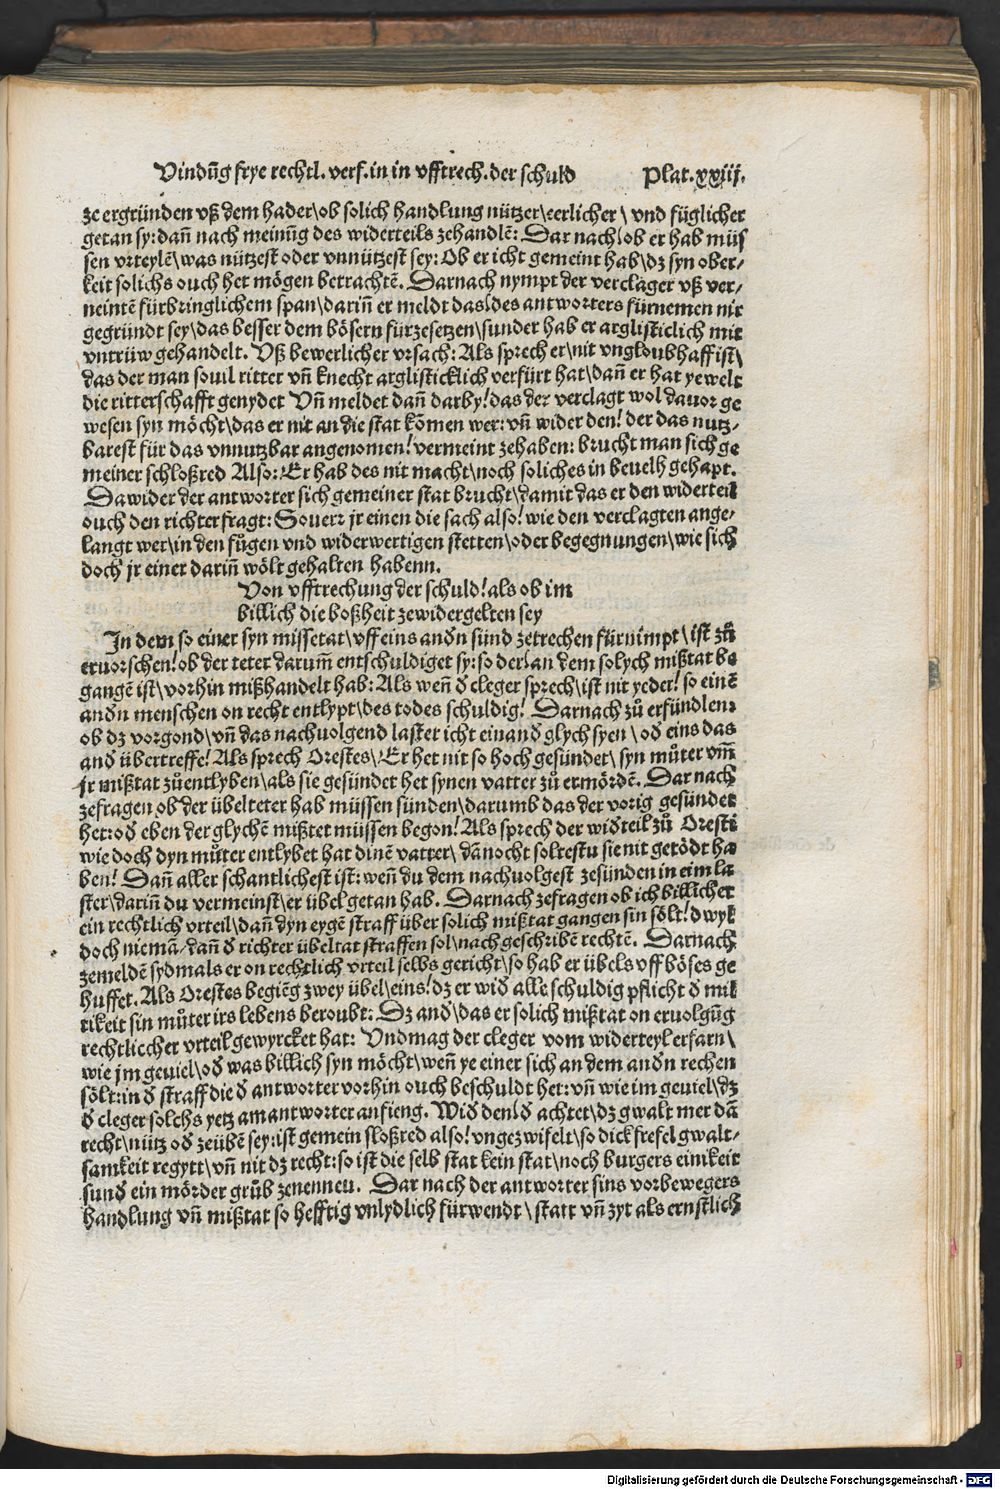 Vindūg frye rechtl. verf. in in vfftrech. der schuld Plat. xxiij.
ze ergründen vß dem hader\ob solich handlung nützer\eerlicher\ vnd füglicher
getan sy: dañ nach meinūg des widerteils zehandlē: Dar nach\ob er hab müs
sen vrteylē\was nützest oder vnnützest sey: Ob er icht gemeint hab\dz syn ober⸗
keit solichs ouch het mögen betrachtē. Darnach nympt der verclager vß ver⸗
neintē fürbringlichem span\dariñ er meldt das\des antworters fürnemen nit
gegründt sey\das besser dem bösern fürzesetzen\sunder hab er arglisticlich mit
vntrüw gehandelt. Vß bewerlicher vrsach: Als sprech er\nit vngloubhafft ist\
das der man souil ritter vñ knecht arglisticklich verfürt hat\dañ er hat ye welt
die ritterschafft genydet Vñ meldet dañ darby! das der verclagt wol dauor ge
wesen syn möcht\das er nit an die stat kōmen wer: vñ wider den! der das nutz⸗
barest für das vnnutzbar angenomen! vermeint zehaben: brucht man sich ge
meiner schloßred Also: Er hab des nit macht\noch soliches in beuelh gehapt.
Dawider der antworter sich gemeiner stat brucht\damit das er den widerteil
ouch den richter fragt: Souerr jr einen die sach also! wie den verclagten ange⸗
langt wer\in den fůgen vnd widerwertigen stetten\oder begegnungen\wie sich
doch jr einer dariñ wölt gehalten habenn.
Von vfftrechung der schuld! als ob im
billich die boßheit zewidergelten sey
In dem so einer syn missetat\vff eins andn sünd zetrechen fürnimpt\ist zů
eruorschen! ob der teter darum̄ entschuldiget sy: so der\an dem solych mißtat be
gangē ist\vorhin mißhandelt hab: Als weñ d cleger sprech\ist nit yeder! so einē
andn menschen on recht entlypt\des todes schuldig! Darnach zů erfündlen:
ob dz vorgond\vñ das nachuolgend laster icht einand glych syen\od eins das
and übertreffe! Als sprech Orestes\Er het nit so hoch gesündet\syn můter vm̄
jr mißtat zůentlyben\als sie gesündet het synen vatter zů ermördē. Dar nach
zefragen ob der übelteter hab müssen sünden\darumb das der vorig gesündet
het: od eben der glychē mißtet müssen begon! Als sprech der widteil zů Oresti
wie doch dyn můter entlybet hat dinē vatter\dānocht soltestu sie nit getödt ha
ben! Dañ aller schantlichest ist: weñ du dem nachuolgest zesünden in eim la
ster\dariñ du vermeinst\er übel getan hab. Darnach zefragen ob ich billicher
ein rechtlich vrteil\dañ dyn eygē straff über solich mißtat gangen sin sölt! dwyl
doch niemā\dañ d richter übeltat straffen sol\nach geschribē rechtē. Darnach
zemeldē sydmals er on rechtlich vrteil selbs gericht\so hab er übels vff böses ge
huffet. Als Orestes begiēg zwey übel\eins! dz er wid alle schuldig pflicht d mil
tikeit sin můter irs lebens beroubt: Dz and\das er solich mißtat on eruolgūg
rechtliccher vrteil gewyrcket hat: Vnd mag der cleger vom widerteyl erfarn\
wie jm geuiel\od was billich syn möcht\weñ ye einer sich an dem andn rechen
sölt: in d straff die d antworter vorhin ouch beschuldt het: vñ wie im geuiel\dz
d cleger solchs yetz am antworter anfieng. Wid den\d achtet\dz gwalt mer dā
recht\nütz od zeübē sey: ist gemein sloßred also! vngezwifelt\so dick frefel gwalt⸗
samkeit regytt\vñ nit dz recht: so ist die selb stat kein stat\noch burgers einikeit
sund ein mörder grůb zenenneu. Dar nach der antworter sins vorbewegers
handlung vñ mißtat so hefftig vnlydlich fürwendt\statt vñ zyt als ernstlich
Digitalisierung gefördert durch die Deutsche Forschungsgemeinschaft - DFG